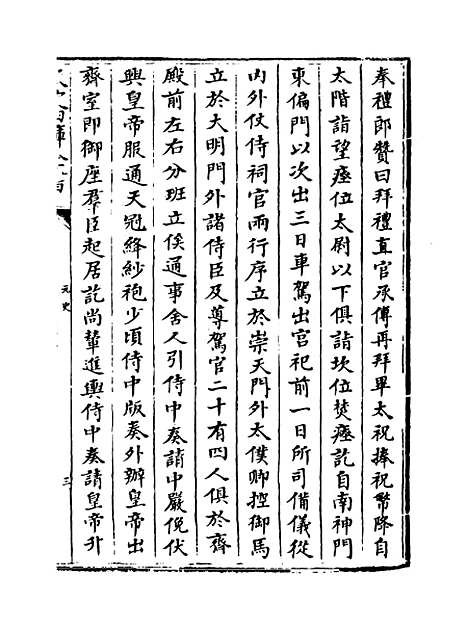 奉禮郎贊曰拜禮直官承傳再拜畢太祝捧祝幣降自
太階詣望瘞位太尉以下俱詣坎位焚瘞訖自南神門
東偏門以次出三日車駕出宫祀前一日所司備儀從
内外仗侍祠官兩行序立於崇天門外太僕卿控御馬
立於大明門外諸侍臣及導駕官二十有四人俱於齊
殿前左右分班立俟通事舍人引侍中奏請中嚴俛伏
興皇帝服通天冠絳紗袍少頃侍中版奏外辦皇帝出
齊室即御座羣臣起居訖尚輦進輿侍中奏請皇帝升
元史
三